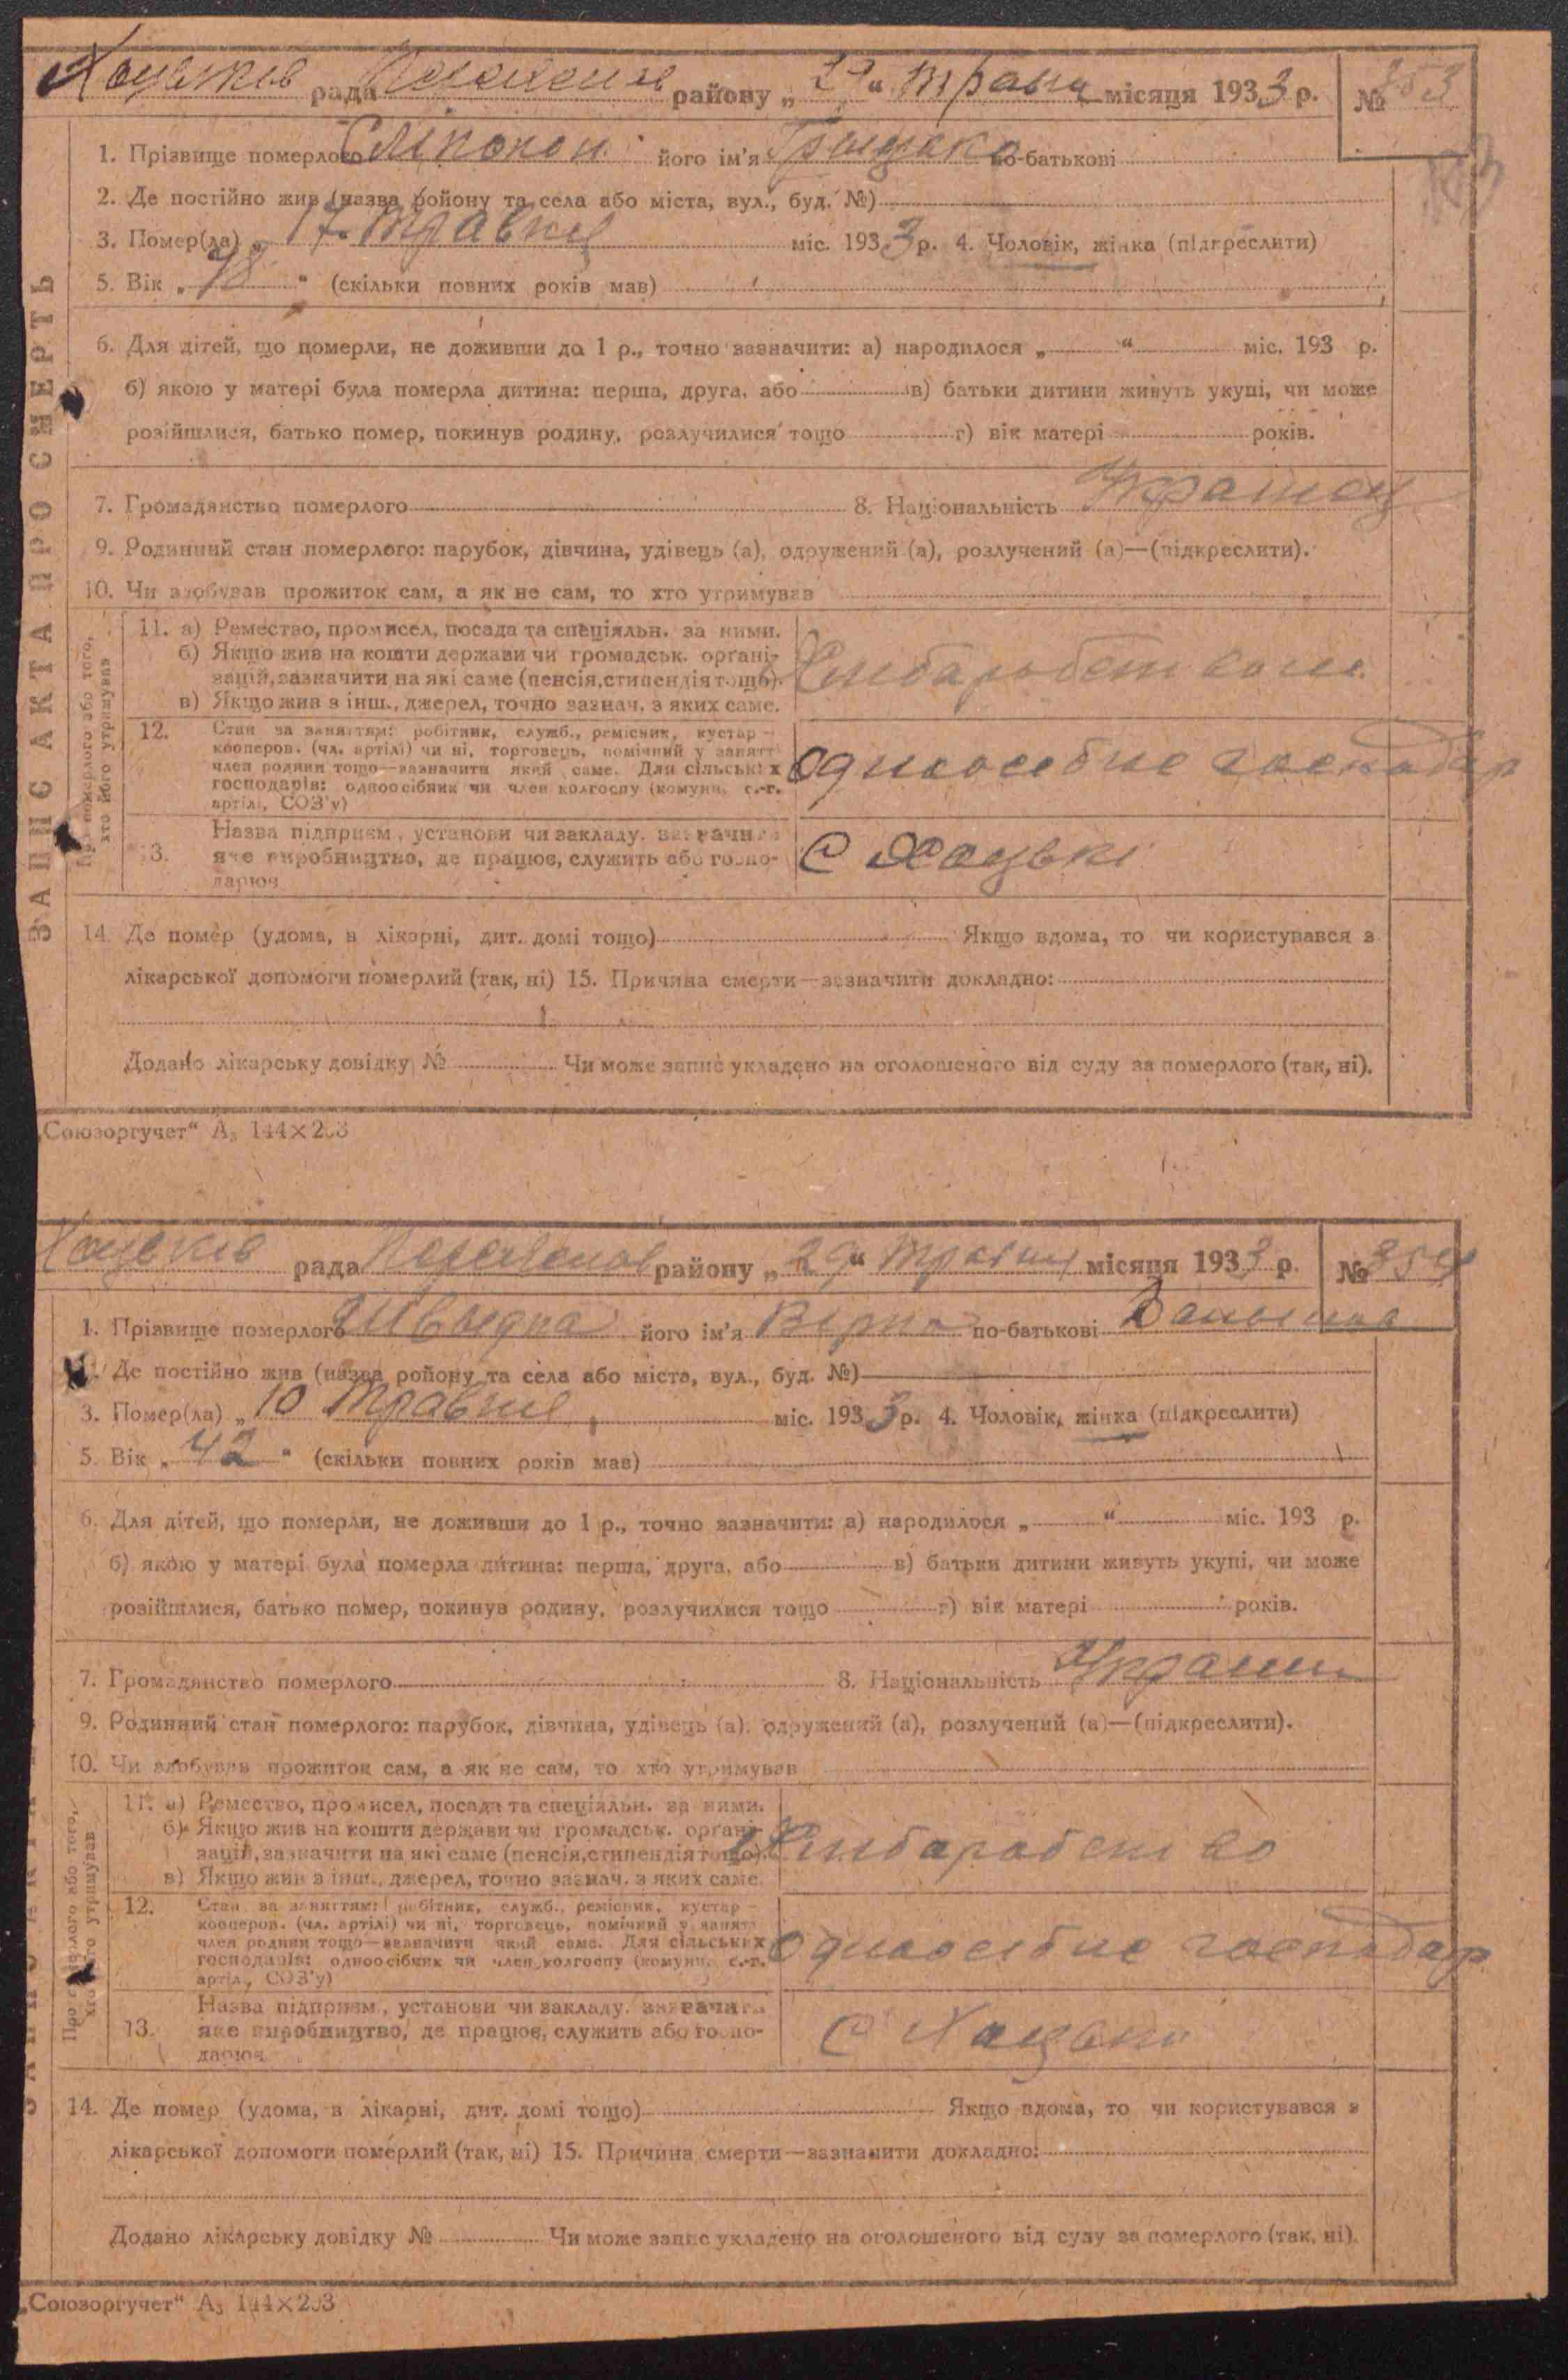 Хоцьків рада району „29“ травня місяця 1933 р. № 353
1. Прізвище померлого Сліпокон його ім'я Грицько по-батькові
2. Де постійно жив (назва ройону та села або міста, вул., буд. №)
3. Помер(ла) „17 травня міс. 1933 р. 4. Чоловік, жінка (підкреслити)
5. Вік „ “ (скільки повних років мав)
6. Для дітей, що померли, не доживши до 1 р., точно зазначити: а) народилося „ “ міс. 193 р.
б) якою у матері була померла дитина: перша, друга, або в) батьки дитини живуть укупі, чи може
розійшлися, батько помер, покинув родину, розлучилися тощо г) вік матері років.
7. Громадянство померлого 8. Національність Украінец
9. Родинний стан померлого: парубок, дівчина, удівець (а), одружений (а), розлучений (а)—(підкреслити).
10. Чи здобував прожиток сам, а як не сам, то хто утримував
ЗАПИС АКТА ПРО СМЕРТЬ
Про померлого або того,
хто його утримував
11. а) Ремество, промисел, посада та спеціяльн. за ними.
б) Якщо жив на кошти держави чи громадськ. органі-
зацій, зазначити на які саме (пенсія, стипендія тощо).
в) Якщо жив з інш., джерел, точно зазнач. з яких саме.
12. Стан за заняттям: робітник, служб., ремісник, кустар—
кооперов. (чл. артілі) чи ні, торговець, помічний у занятт
член родини тощо—зазначити який саме. Для сільських
господарів: одноосібник чи член колгоспу (комуни, с.-г.
артілі, СОЗ'у)
одноособне господар
13. Назва підприєм., установи чи закладу. зазначити
яке виробництво, де працює, служить або госпо-
дарює
С Хоцькі
14. Де помер (удома, в лікарні, дит. домі тощо) Якщо вдома, то чи користувався з
лікарської допомоги померлий (так, ні) 15. Причина смерти—зазначити докладно:
Додано лікарську довідку № Чи може запис укладено на оголошеного від суду за померлого (так, ні).
„Союзоргучет“ А₅ 144×203
Хоцьків рада району „29“ травня місяця 1933 р. № 354
1. Прізвище померлого Швыдка його ім'я Вірка по-батькові
Де постійно жив (назва ройону та села або міста, вул., буд. №)
3. Помер(ла) „10 травня міс. 1933 р. 4. Чоловік, жінка (підкреслити)
5. Вік „42“ (скільки повних років мав)
6. Для дітей, що померли, не доживши до 1 р., точно зазначити: а) народилося „ “ міс. 193 р.
б) якою у матері була померла дитина: перша, друга, або в) батьки дитини живуть укупі, чи може
розійшлися, батько помер, покинув родину, розлучилися тощо г) вік матері років.
7. Громадянство померлого 8. Національність
9. Родинний стан померлого: парубок, дівчина, удівець (а), одружений (а), розлучений (а)—(підкреслити).
10. Чи здобував прожиток сам, а як не сам, то хто утримував
11. а) Ремество, промисел, посада та спеціяльн. за ними.
б) Якщо жив на кошти держави чи громадськ. органі-
зацій, зазначити на які саме (пенсія, стипендія тощо).
в) Якщо жив з інш., джерел, точно зазнач. з яких саме.
12. Стан за заняттям: робітник, служб., ремісник, кустар—
кооперов. (чл. артілі) чи ні, торговець, помічний у занятт
член родини тощо—зазначити який саме. Для сільських
господарів: одноосібник чи член колгоспу (комуни, с.-г.
артілі, СОЗ'у)
одноособне господар
13. Назва підприєм., установи чи закладу. зазначити
яке виробництво, де працює, служить або госпо-
дарює
С Хоцьки
14. Де помер (удома, в лікарні, дит. домі тощо) Якщо вдома, то чи користувався з
лікарської допомоги померлий (так, ні) 15. Причина смерти—зазначити докладно:
Додано лікарську довідку № Чи може запис укладено на оголошеного від суду за померлого (так, ні).
„Союзоргучет“ А₅ 144×203